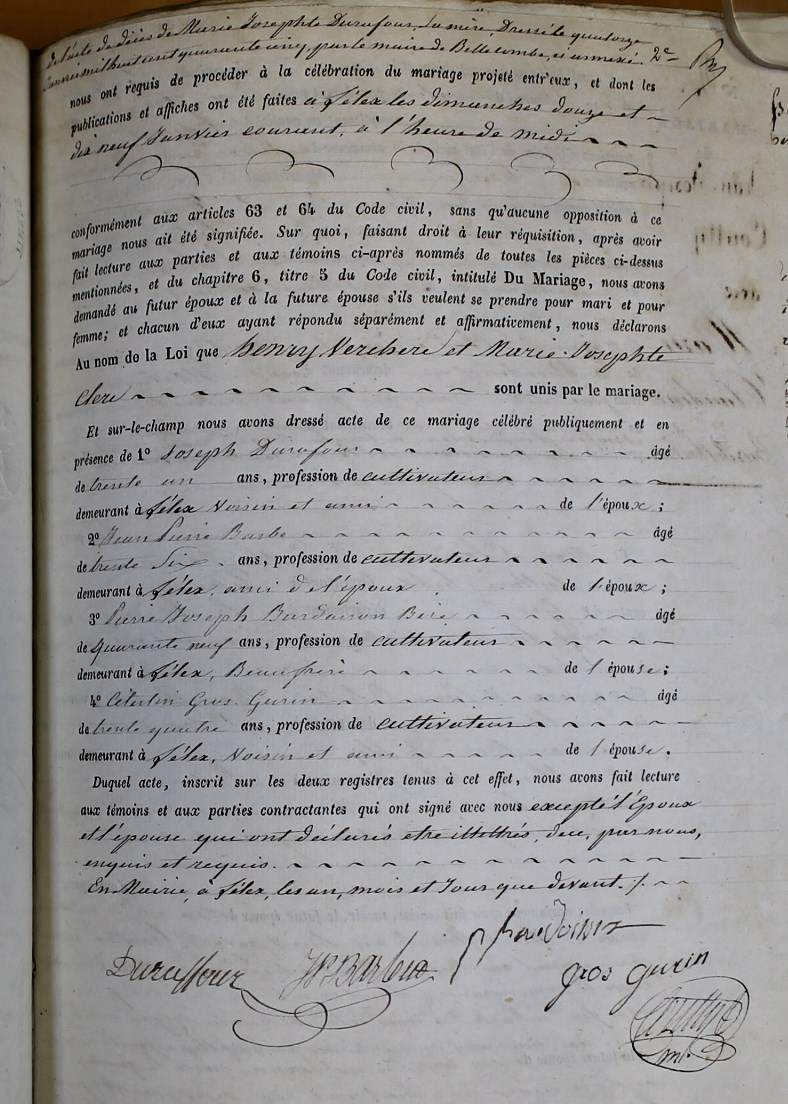 de l'acte de décès de Marie Josephte Durafour, sa mère, Dressé le quatorze
Janvier mil huit cent quarante cinq, par le maire de Bellecombe, ci annexé. 2e
nous ont requis de procéder à la célébration du mariage projeté entr'eux, et dont les
publications et affiches ont été faites à félex les dimanches douze et
dix neuf Janvier courant, à l'heure de midi
conformément aux articles 63 et 64 du Code civil, sans qu'aucune opposition à ce
mariage nous ait été signifiée. Sur quoi, faisant droit à leur réquisition, après avoir
fait lecture aux parties et aux témoins ci-après nommés de toutes les pièces ci-dessus
mentionnées, et du chapitre 6, titre 5 du Code civil, intitulé Du Mariage, nous avons
demandé au futur époux et à la future épouse s'ils veulent se prendre pour mari et pour
femme; et chacun d'eux ayant répondu séparément et affirmativement, nous déclarons
Au nom de la Loi que henry Verchere et Marie Josephte
Clerc sont unis par le mariage.
Et sur-le-champ nous avons dressé acte de ce mariage célébré publiquement et en
présence de 1º Joseph Durafour âgé
de trente un ans, profession de cultivateur
demeurant à félex Voisin et ami de l'époux;
2º Jean Pierre Barbe âgé
de trente Six ans, profession de cultivateur
demeurant à félex, ami de l'époux de l'époux;
3º Pierre Joseph âgé
de quarante neuf ans, profession de cultivateur
demeurant à félex, Beaufrère de l'épouse;
4º Célestin Gros Gurin âgé
de trente quatre ans, profession de cultivateur
demeurant à félex, Voisin et ami de l'épouse.
Duquel acte, inscrit sur les deux registres tenus à cet effet, nous avons fait lecture
aux témoins et aux parties contractantes qui ont signé avec nous excepté l'Epoux
et l'épouse qui ont déclarés etre illettrés, deu, par nous,
enquis et requis.
En Mairie, à félex, les an, mois et Jour que devant ./.
Duraffour JP Barbe
gros gurin